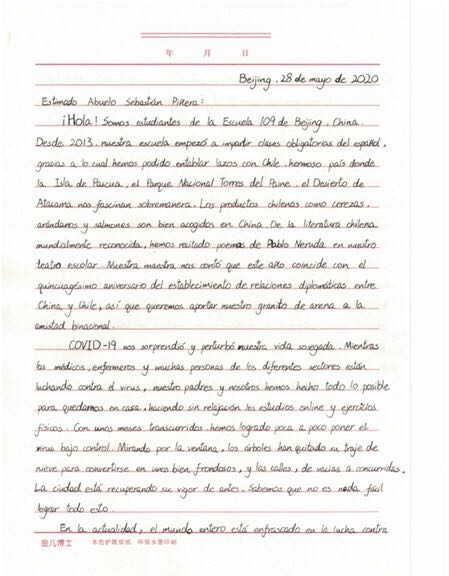 年 月 日
Beijing, 28 de mayo de 2020
Estimado Abuelo Sebastián Piñera:
¡Hola! Somos estudiantes de la Escuela 109 de Beijing, China.
Desde 2013, nuestra escuela empezó a impartir clases obligatorias del español,
gracias a lo cual hemos podido entablar lazos con Chile, hermoso país donde
la Isla de Pascua, el Parque Nacional Torres del Paine, el Desierto de
Atacama nos fascinan sobremanera. Los productos chilenos como cerezas,
arándanos y salmones son bien acogidos en China. De la literatura chilena
mundialmente reconocida, hemos recitado poemas de Pablo Neruda en nuestro
teatro escolar. Nuestra maestra nos contó que este año coincide con el
quincuagésimo aniversario del establecimiento de relaciones diplomáticas entre
China y Chile, así que queremos aportar nuestro granito de arena a la
amistad binacional.
COVID-19 nos sorprendió y perturbó nuestra vida sosegada. Mientras
los médicos, enfermeros y muchas personas de los diferentes sectores están
luchando contra el virus, nuestro padres y nosotros hemos hecho todo lo posible
para quedarnos en casa, haciendo sin relajación los estudios online y ejercicios
físicos. Con unos meses transcurridos, hemos logrado poco a poco poner el
virus bajo control. Mirando por la ventana, los árboles han quitado su traje de
nieve para convertirse en unos bien frondosos, y las calles, de vacías a concurridas.
La ciudad está recuperando su vigor de antes. Sabemos que no es nada fácil
lograr todo esto.
En la actualidad, el mundo entero está enfrascado en la lucha contra
金儿博士 本色护眼原纸 环保水墨印刷